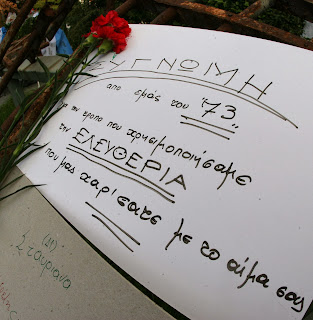 ΣΥΓΝΩΜΗ
από εμάς του '73
για τον τρόπο που χρησιμοποιήσαμε
την ΕΛΕΥΘΕΡΙΑ
που μας χαρίσατε με το αίμα σας
(21)
Σταυριανο